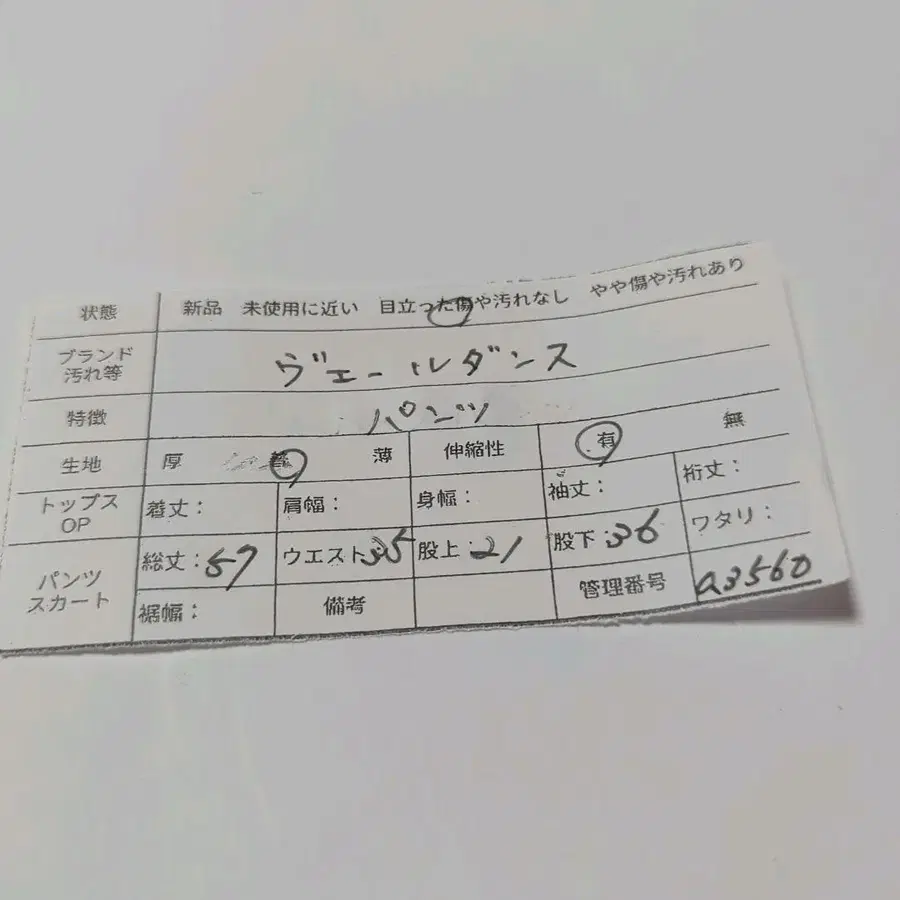 状態 新品 未使用に近い 目立った傷や汚れなし やや傷や汚れあり
ブランド 汚れ等 ヴェールダンス
特徴 パンツ
生地 厚 普 薄 伸縮性 有 無
トップス OP 着丈: 肩幅: 身幅: 袖丈: 裄丈:
パンツ スカート 総丈:57 ウエスト:35 股上:21 股下:36 ワタリ:
裾幅: 備考 管理番号 a3560